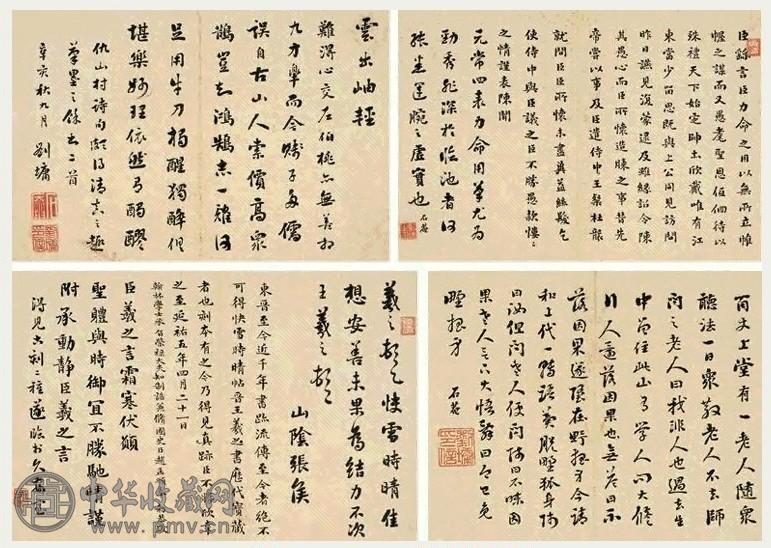 臣繇言臣力命之用以無所立帷
幄之謀而又愚耄聖恩低徊待以
殊禮天下始定師土欣戴唯有江
東當少留思既與上公同見訪問
昨日疏見復蒙逮及雖緣詔令陳
其愚心而臣所懷造膝之事昔先
帝嘗以事及臣遣侍中王粲杜襲
就問臣臣所懷未盡冀益絲髮乞
使侍中與臣議之臣不勝愚款慺慺
之情謹表陳聞
元常四表力命用筆尤為
勁秀非深於臨池者何
運腕之虛實也 石菴
雲出岫輕
難得心交左伯桃六無善相
九方皋而今矮子多儒
誤自古山人索價高眾
鵲豈知鴻鵠志一雞何
足用牛刀獨醒獨醉俱
堪樂妙理依然有酒醪
仇山村詩句頗得清真之趣
筆墨之餘書二首
辛亥秋九月 劉墉
百丈上堂有一老人隨眾
聽法一日眾散老人不去師
問之老人曰我非人也過去生
中曾住此山有學人問大修
行人還落因果也無答曰不
落因果遂墮在野狐身今請
和上代一轉語冀脫野狐身師
曰汝但問老人便問師曰不昧因
果老人言下大悟辭曰已免
野狐身 石菴
羲之頓首快雪時晴佳
想安善未果為結力不次
王羲之頓首
山陰張侯
東晉至今近千年書跡流傳至今者絕不
可得快雪時晴帖晉王羲之書歷代寶藏
者也刻本有之今乃得見真跡臣不勝欣幸
之至延祐五年四月二十一日
翰林學士承旨榮祿大夫知制誥兼修國史臣趙孟頫奉敕恭跋
臣羲之言霜寒伏願
聖體與時御宜不勝馳情謹
附承動靜臣羲之言
得見古刻二種遂臨於
中华收藏网
www.pmv.cn